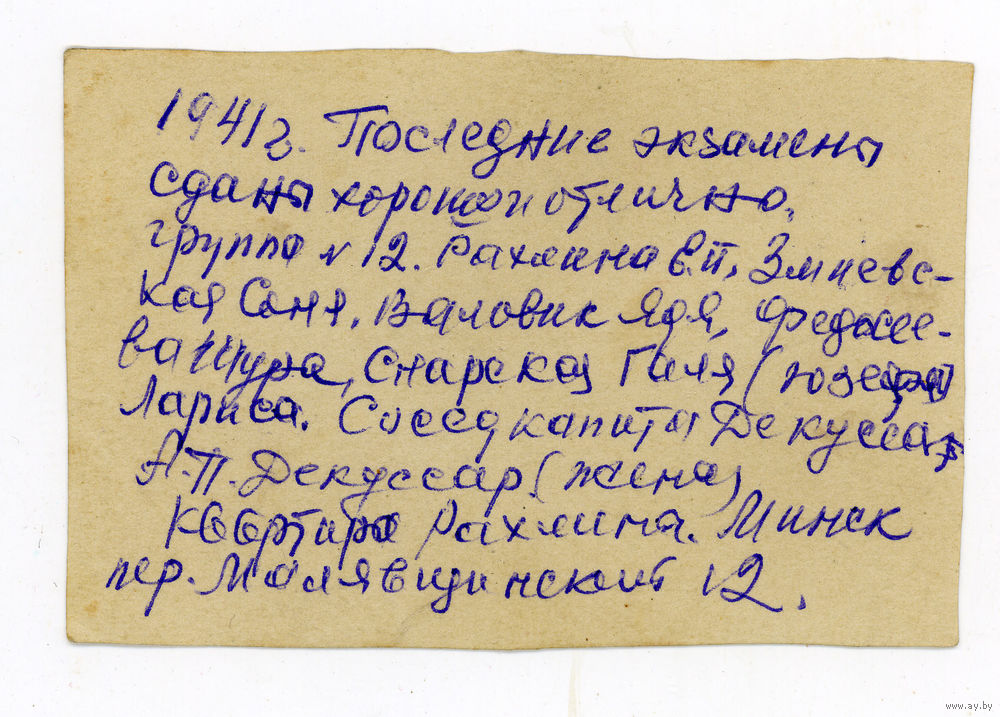 1941г. Последние экзамены
сданы хорошо и отлично.
группа № 12. Рахлина В.П, Змиевс-
кая Соня, Валовик Ядя, Федосее-
ва Шура, Снарская Галя (
Лариса. Сосед капитан Декуссар
А.П. Декуссар (жена)
Квартира Рахлина. Минск
пер. Малявщинский 12.
www.ay.by